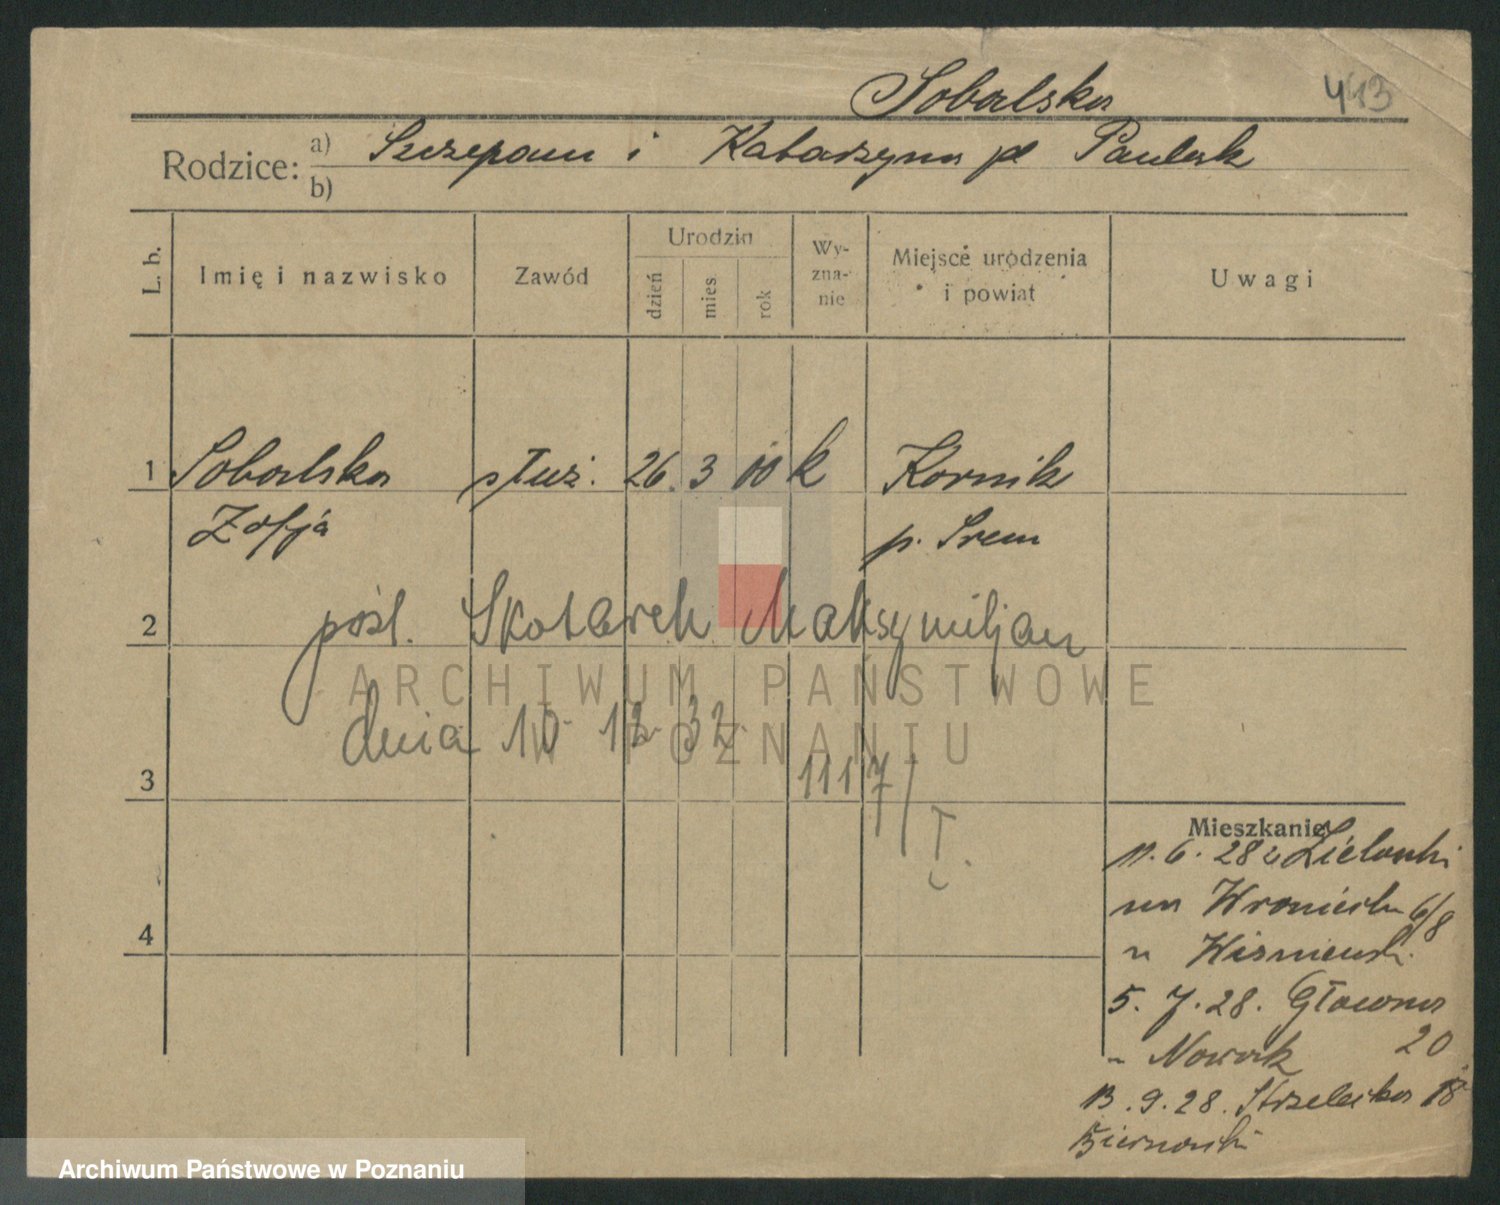 Sobalska
443
Rodzice: a) Szczepan i Katarzyna pł Paulak
b)
L. b.
Imię i nazwisko
Zawód
Urodzin
dzień
mies
rok
Wy-
zna-
nie
Miejsce urodzenia
i powiat
Uwagi
1 Sobalska służ. 26. 3 k Kornik
Zofja p. Srem
2 pośl. Skotarek Maksymiljan
ARCHIWUM PAŃSTWOWE
dnia 10 12 32
W POZNANIU
3 1117/I.
Mieszkanie
11. 6. 28 z Zielonki
na 6/8
u Wisniewski
4
5. 7. 28. Głowna
20
u Nowak
13. 9. 28. Strzelecka 18
Archiwum Państwowe w Poznaniu